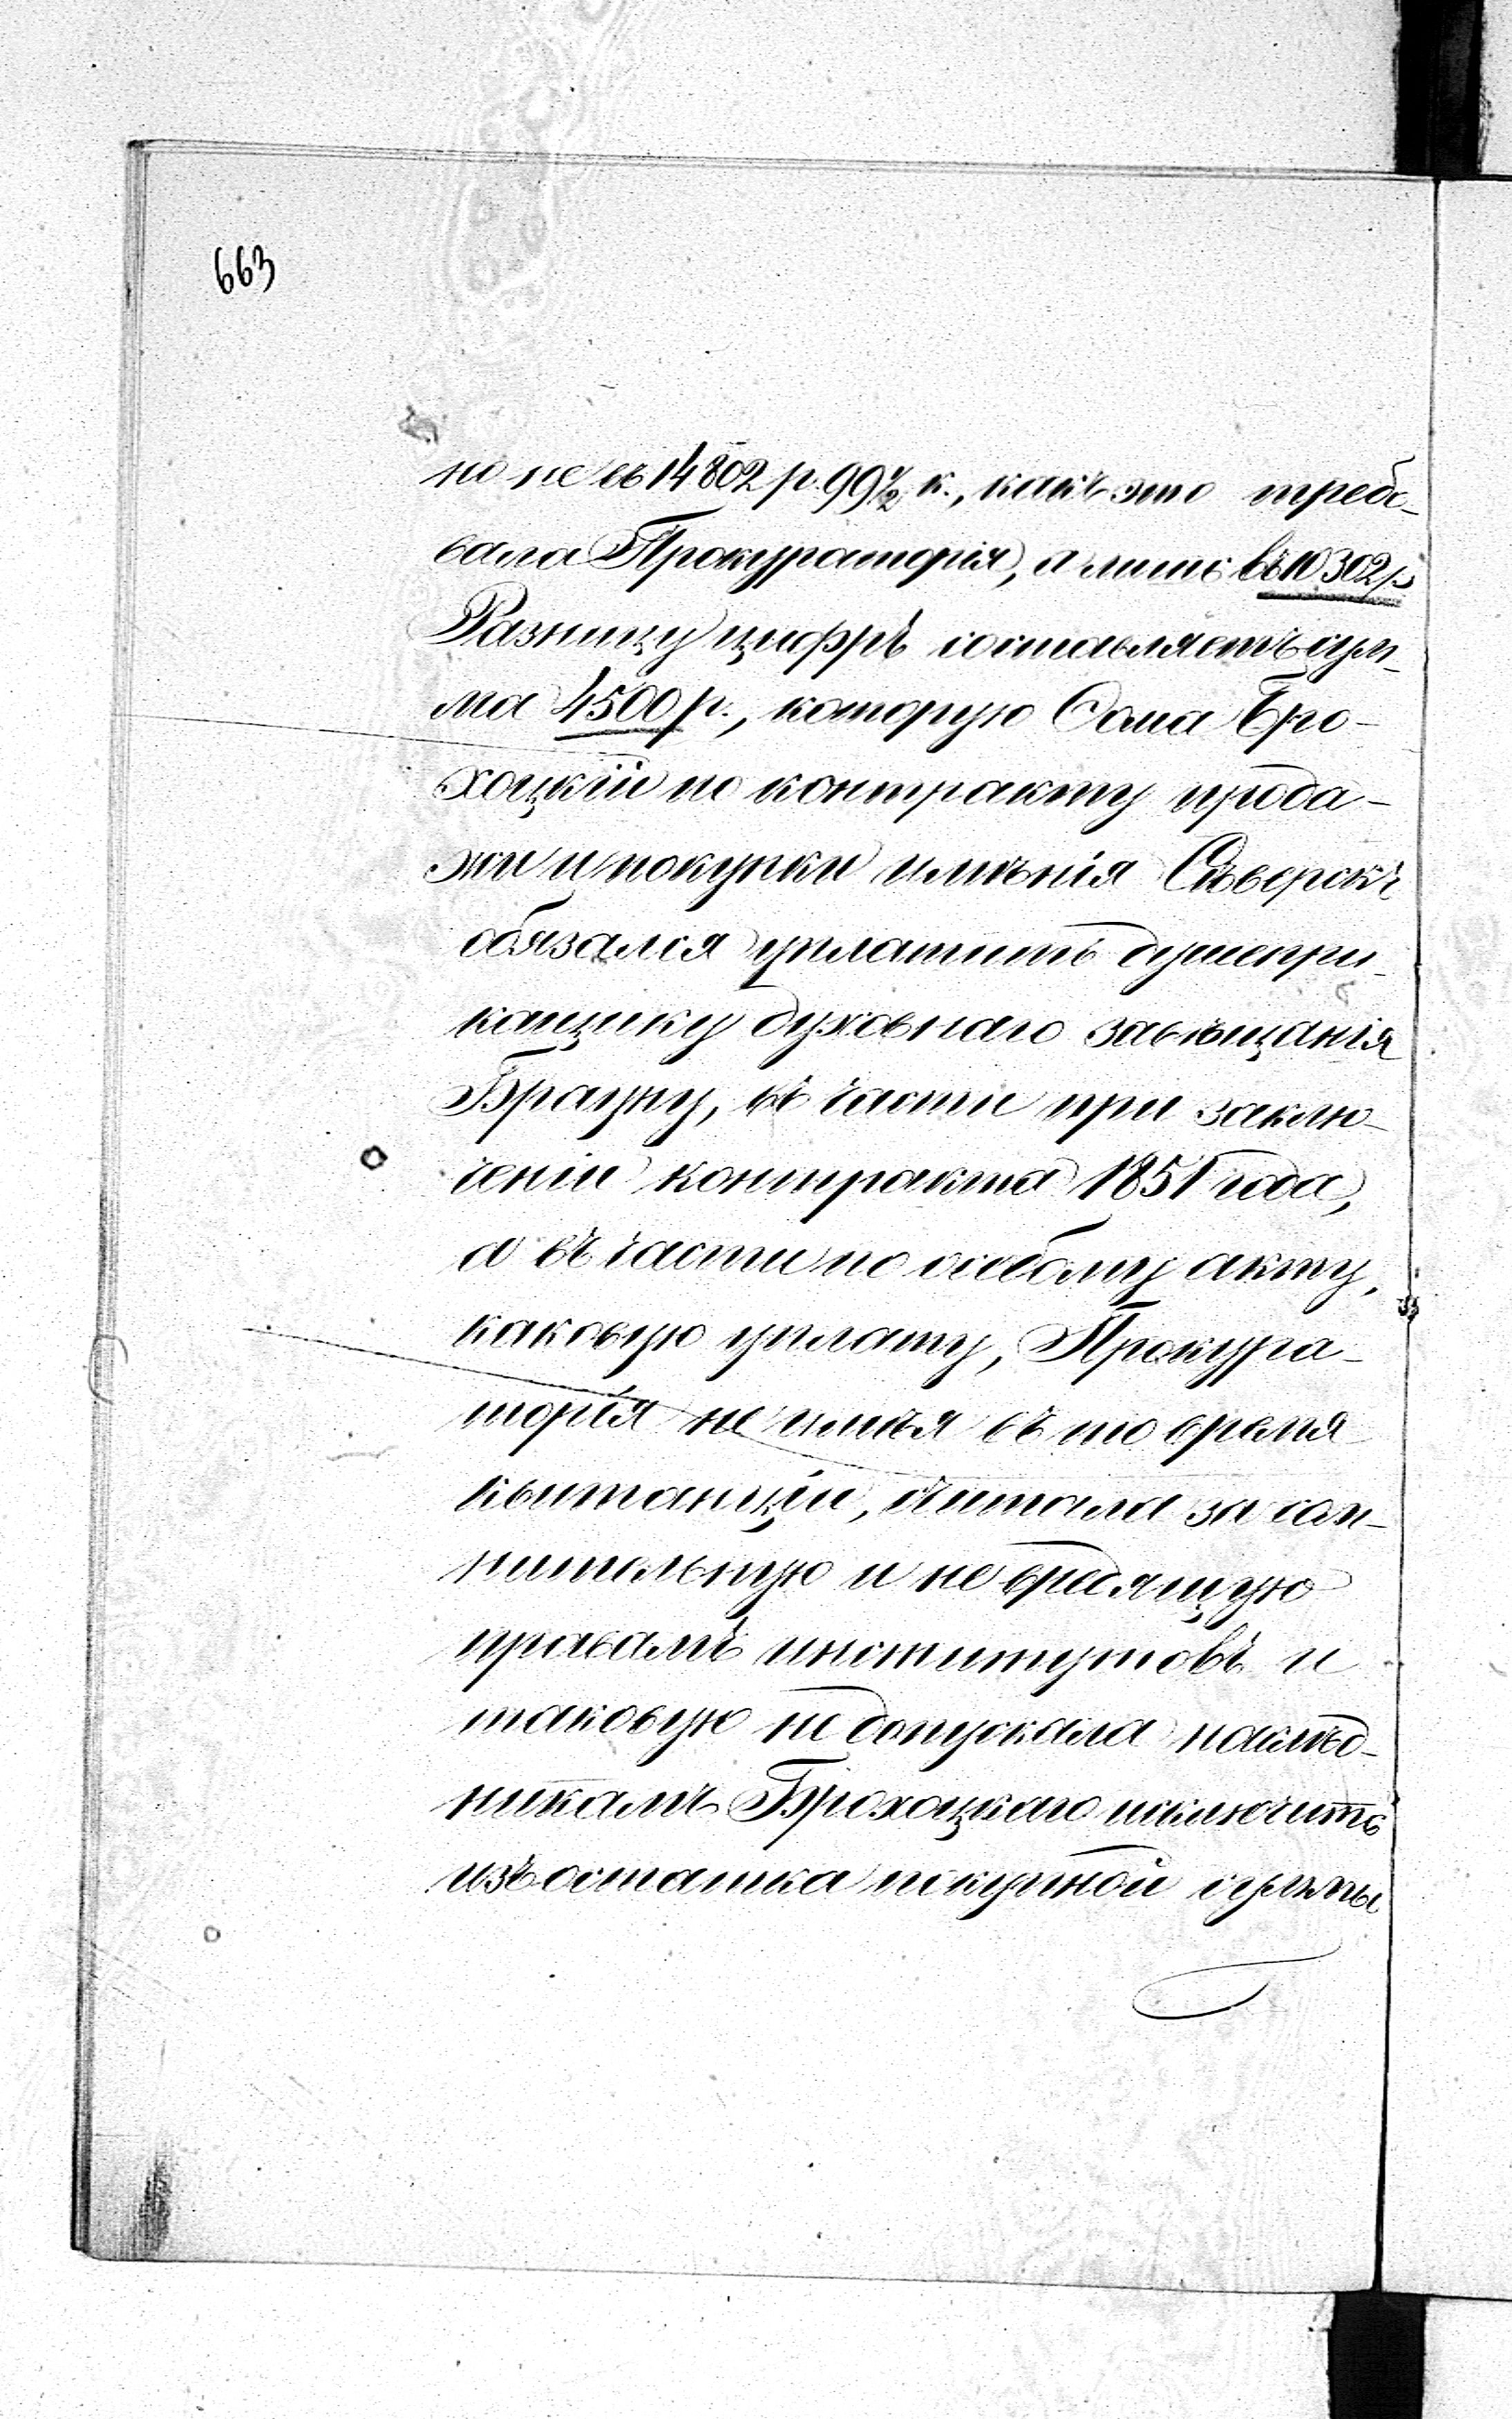 663
но не въ 14802 р. 99½ к., какъ это требо-
вала Прокураторія, а лишь въ 10302 р
Разницу цифръ составляетъ сум-
ма 4500 р., которую Фома Бро-
хоцкій по контракту прода-
жи и покупки имѣнія Сѣверскъ
обязался уплатить душепри-
кащику духовнаго завѣщанія
Брауну, въ части при заклю-
ченіи контракта 1851 года,
а въ части по особому акту,
каковую уплату, Прокура-
торія не имѣя въ то время
квитанціи, считала за сом-
нительную и не вредящую
правамъ институтовъ и
таковую не допускала наслѣд-
никамъ Брохоцкаго исключить
изъ остатка покупной суммы